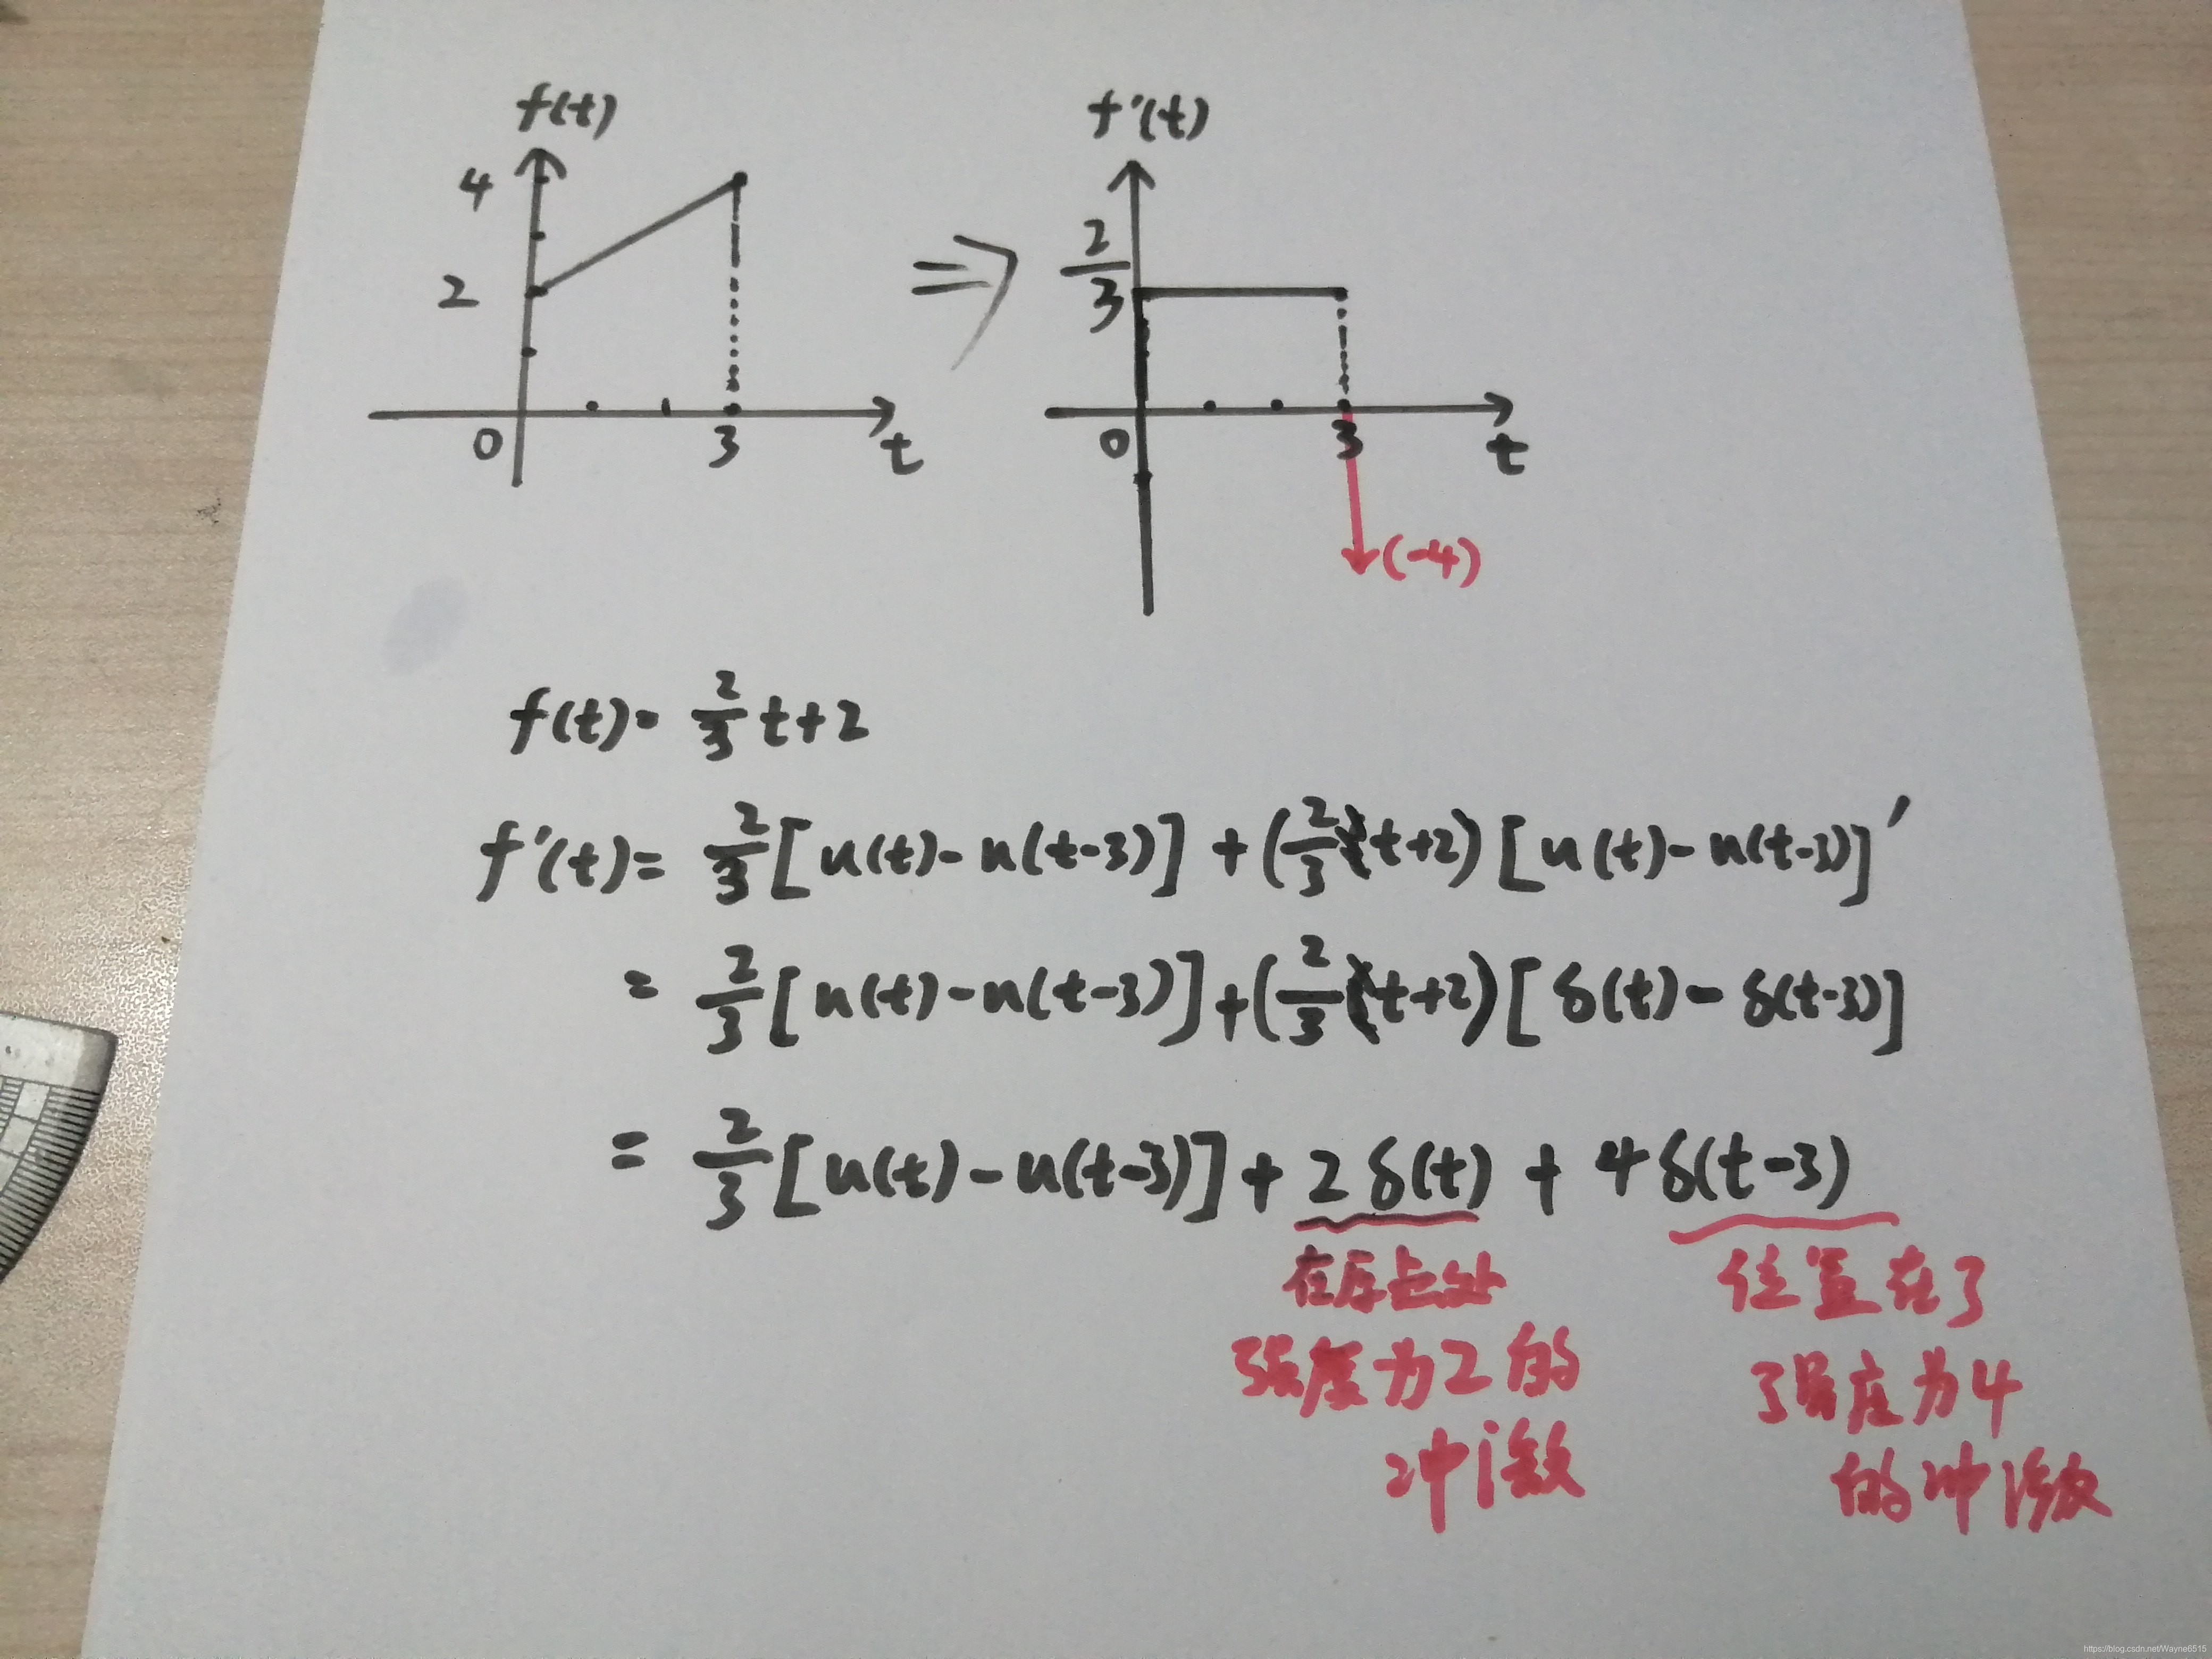 f(t)
4
2
0
3
t
⇒
f'(t)
2/3
0
3
t
(-4)
f(t)= 2/3 t+2
f'(t)= 2/3 [u(t)-u(t-3)] + (2/3 t+2) [u(t)-u(t-3)]'
= 2/3 [u(t)-u(t-3)] + (2/3 t+2) [δ(t)-δ(t-3)]
= 2/3 [u(t)-u(t-3)] + 2δ(t) + 4δ(t-3)
在原点处
强度为2的
冲激
位置在3
强度为4
的冲激
https://blog.csdn.net/Wayne6515